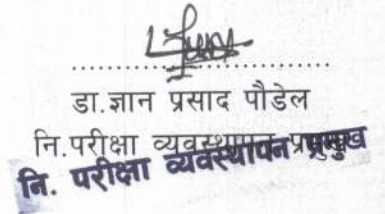 डा.ज्ञान प्रसाद पौडेल
नि.परीक्षा व्यवस्थापन प्रमुख
नि. परीक्षा व्यवस्थापन प्रमुख